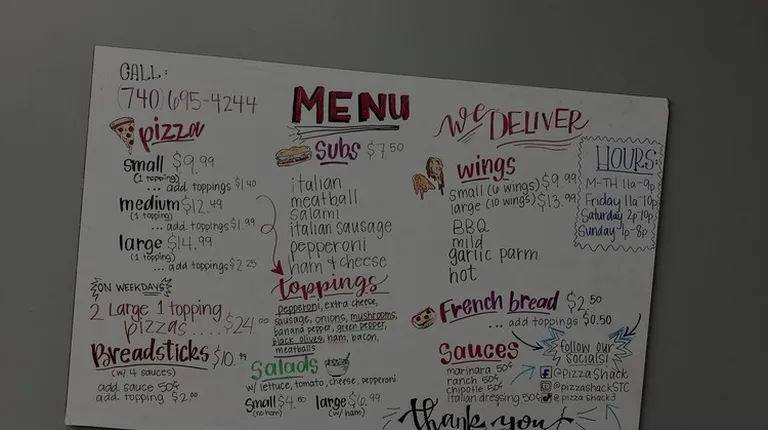 CALL:
(740) 695-4244
MENU
we DELIVER
pizza
small $9.99
(1 topping)
... add toppings $1.40
medium $12.49
(1 topping)
... add toppings $1.99
large $14.99
(1 topping)
... add toppings $2.25
ON WEEKDAYS
2 Large 1 topping
pizzas.....$24.00
Breadsticks $10.99
(w/ 4 sauces)
add sauce 50¢
add topping $2.00
subs $7.50
italian
meatball
salami
italian sausage
pepperoni
ham & cheese
toppings
pepperoni, extra cheese,
sausage, onions, mushrooms,
banana pepper, green pepper,
black olives, ham, bacon,
meatballs
Salads
w/ lettuce, tomato, cheese, pepperoni
small $4.00 large $6.99
(no ham) (w/ ham)
wings
small (6 wings) $9.99
large (10 wings) $13.99
BBQ
mild
garlic parm
hot
HOURS:
M-TH 11a-9p
Friday 11a-10p
Saturday 2p-10p
Sunday 1p-8p
French bread $2.50
... add toppings $0.50
Sauces
marinara 50¢
ranch 50¢
chipotle 50¢
italian dressing 50¢
follow our
socials!
@PizzaShack
@pizzashackSTC
@pizzashack3
thank you!